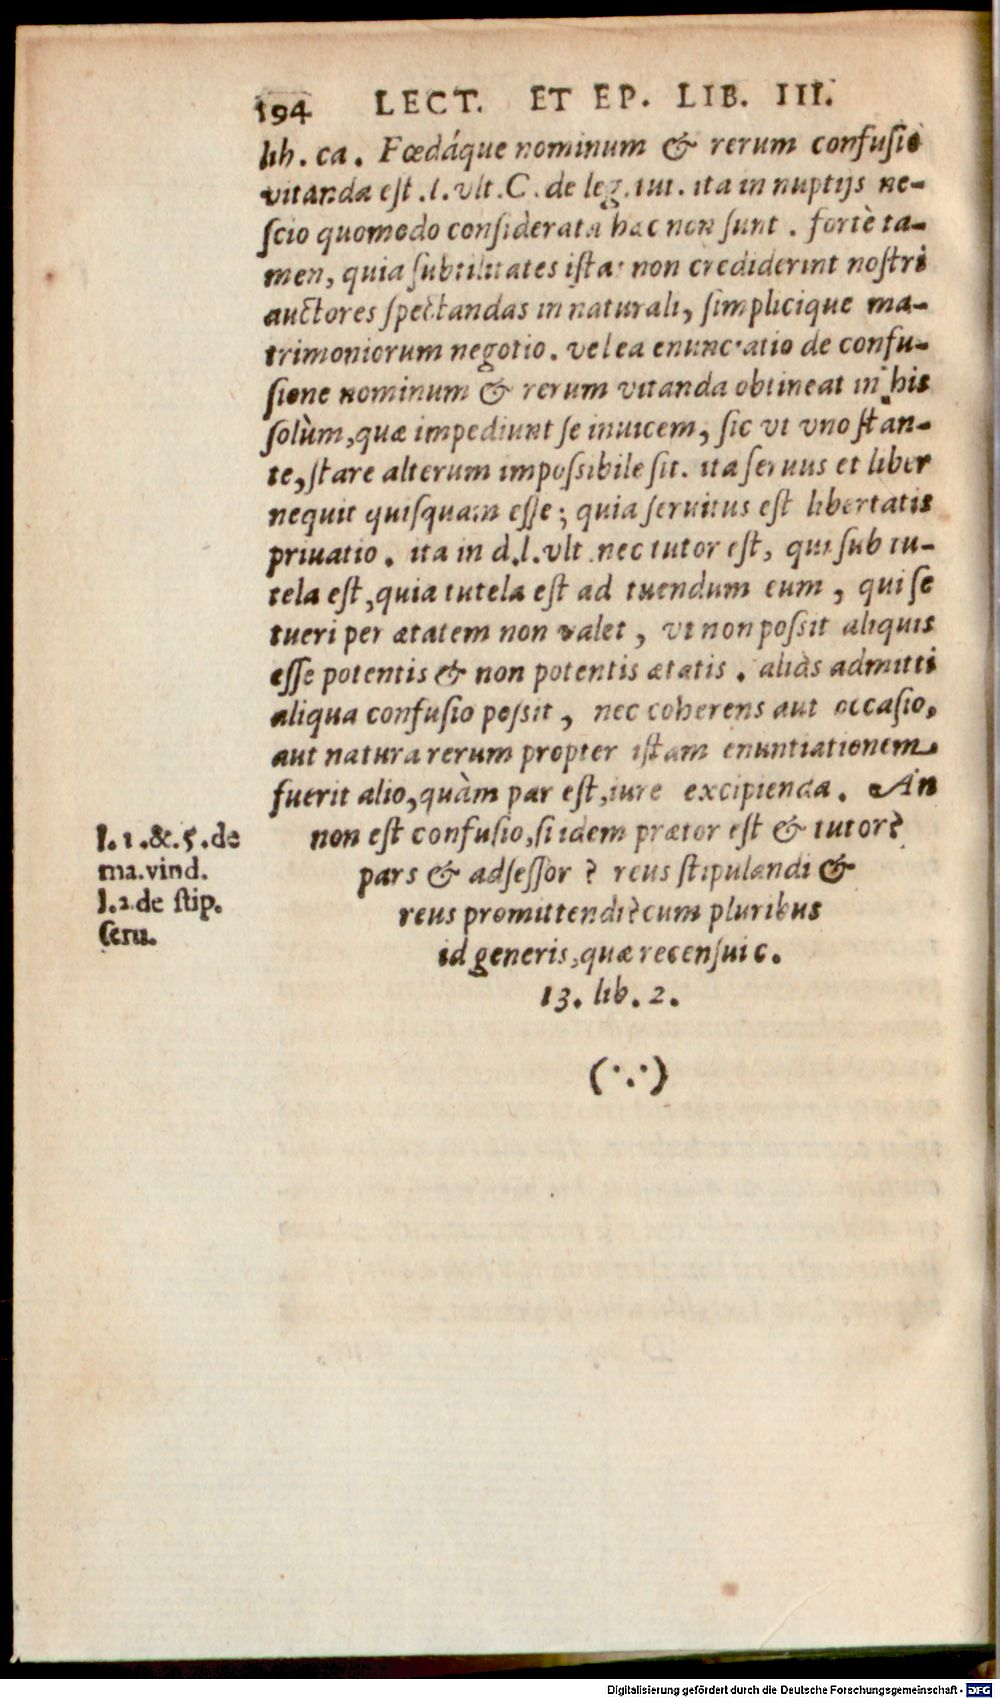 194 LECT. ET EP. LIB. III.
lib. ca. Fœdáque nominum & rerum confusio
vitanda est. l. vlt. C. de leg. tut. ita in nuptijs ne-
scio quomodo considerata hæc non sunt. fortè ta-
men, quia subtilitates istas non crediderint nostri
auctores spectandas in naturali, simplicique ma-
trimoniorum negotio. vel ea enunciatio de confu-
sione nominum & rerum vitanda obtineat in his
solùm, quæ impediunt se inuicem, sic vt vno stan-
te, stare alterum impossibile sit. ita seruus et liber
nequit quisquam esse; quia seruitus est libertatis
priuatio. ita in d. l. vlt. nec tutor est, qui sub tu-
tela est, quia tutela est ad tuendum eum, qui se
tueri per ætatem non valet, vt non possit aliquis
esse potentis & non potentis ætatis. aliàs admitti
aliqua confusio possit, nec coherens aut occasio,
aut natura rerum propter istam enuntiationem
fuerit alio, quàm par est, iure excipienda. An
non est confusio, si idem prætor est & tutor?
pars & adsessor? reus stipulandi &
reus promittendi? cum pluribus
id generis, quæ recensui c.
13. lib. 2.
(∵)
l. 1. &. 5. de
ma. vind.
l. 2. de stip.
seru.
Digitalisierung gefördert durch die Deutsche Forschungsgemeinschaft - DFG